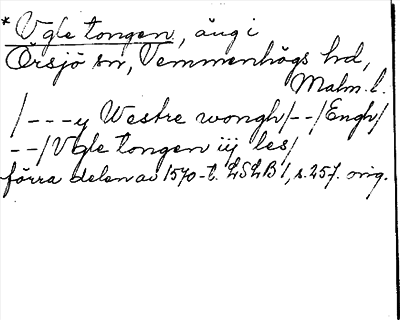 * Vgle tongen, äng i
Örsjö sn, Vemmenhögs hd,
Malm. l.
/ - - - y Westre wongh / - - / Engh /
- - / Vgle tongen iij les /
förra delen av 1570-t. LSLB 1, s. 257. orig.